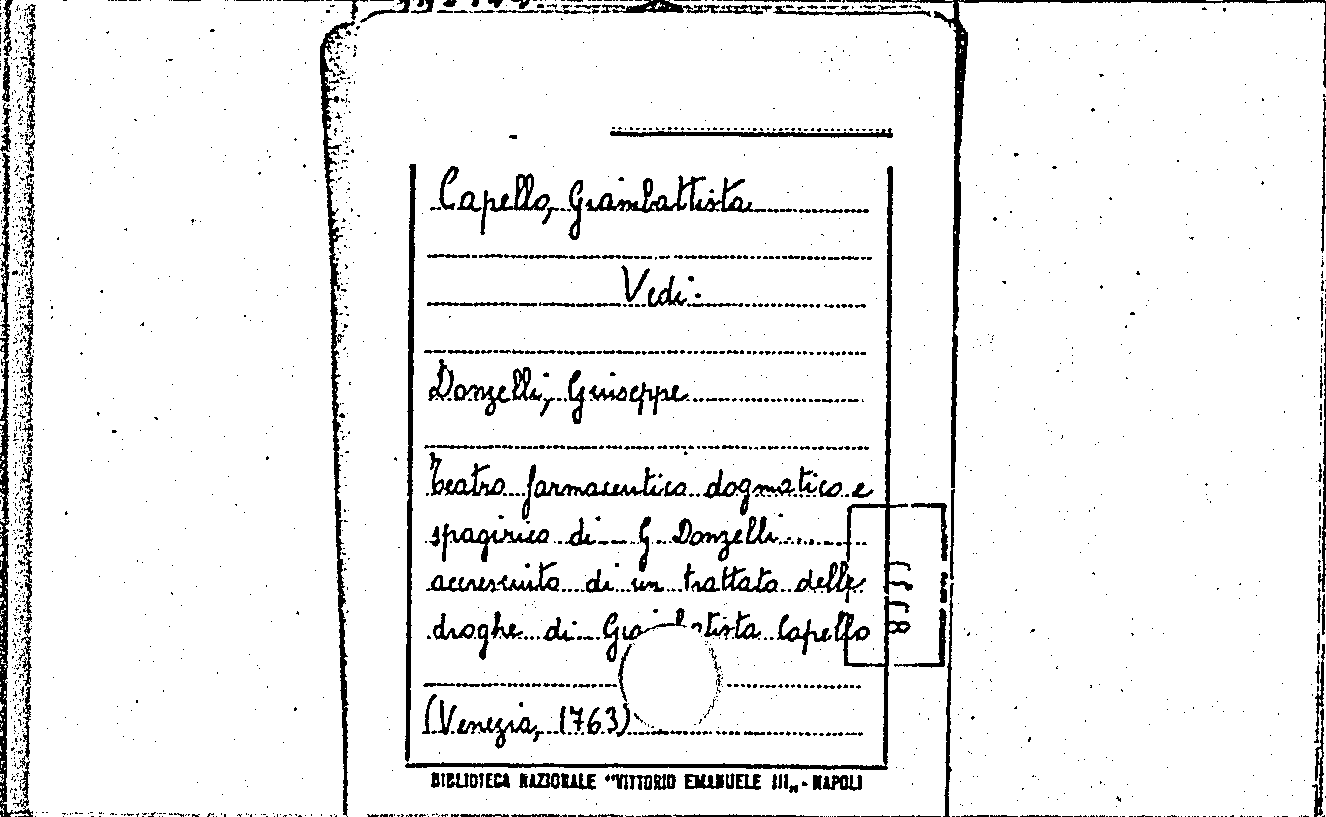 Capello, Giambattista
Vedi:
Donzelli, Giuseppe
Teatro farmaceutico dogmatico e
spagirico di G Donzelli......
accresciuto di un trattato delle
droghe di Capello
(Venezia, 1763)
BIBLIOTECA NAZIONALE "VITTORIO EMANUELE III„ - NAPOLI